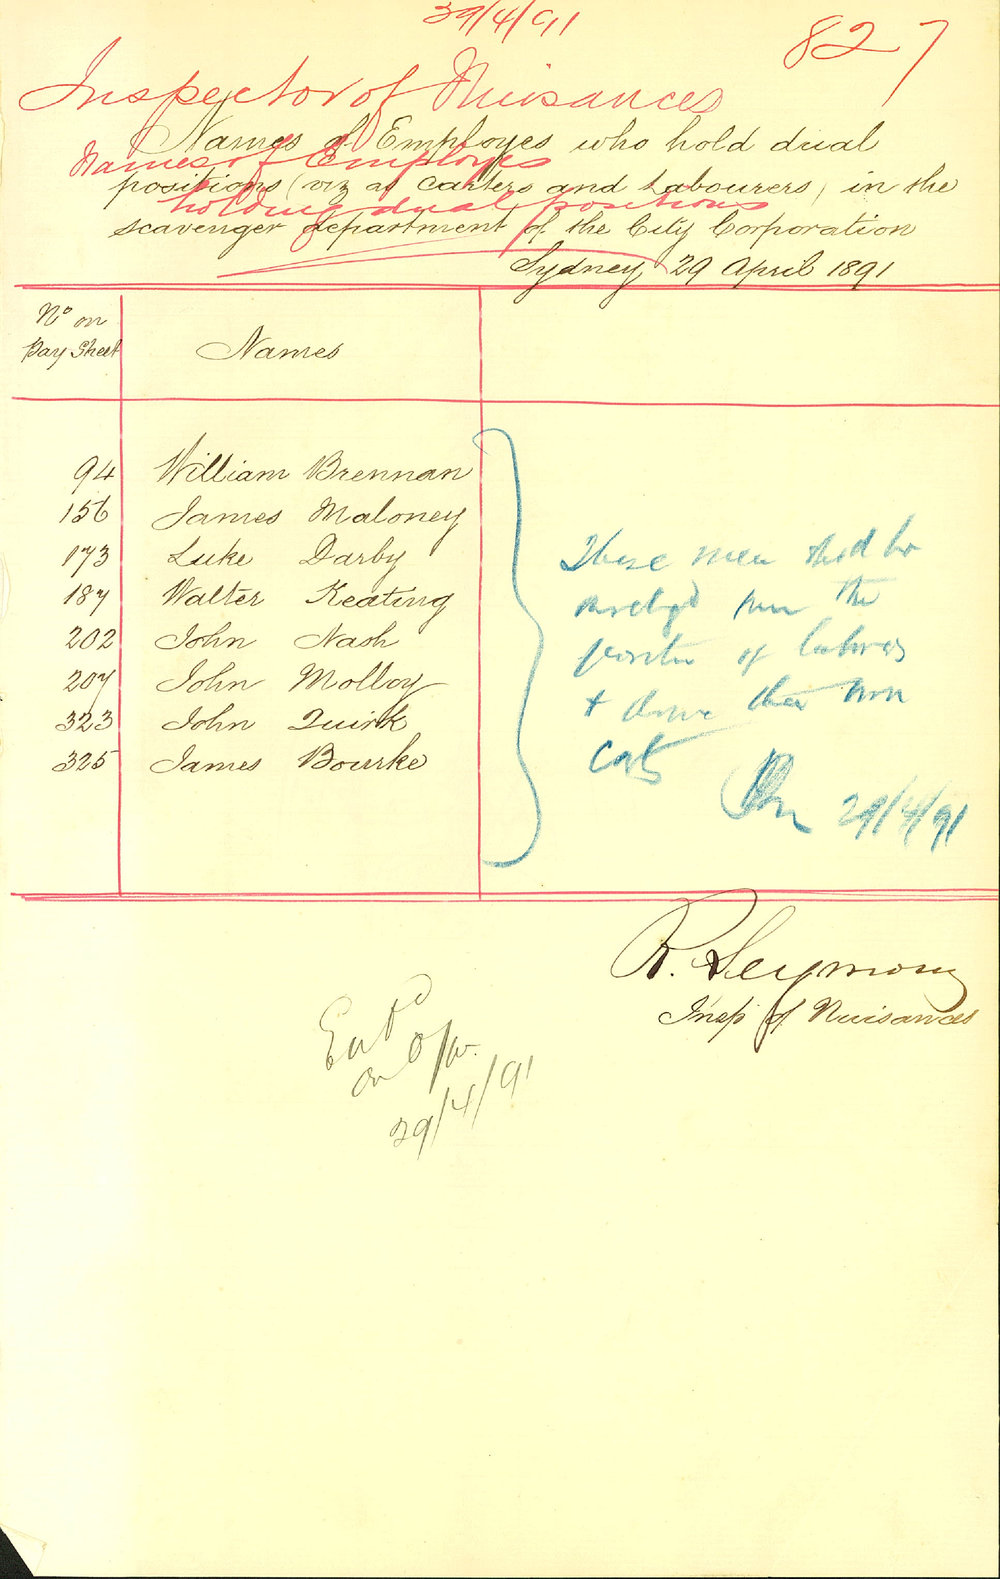 29/4/91
827
Inspector of Nuisances
Names of Employes
holding dual positions
Names of Employes who hold dual
positions (viz as Carters and Labourers) in the
scavenger department of the City Corporation
Sydney 29 April 1891
No on
Pay Sheet
Names
94 William Brennan
156 James Maloney
173 Luke Darby
187 Walter Keating
202 John Nash
207 John Molloy
323 John Quirk
325 James Bourke
These men
the
of
+ their own
Carts
29/4/91
R. Seymour
Insp of Nuisances
Entd
on
29/4/91